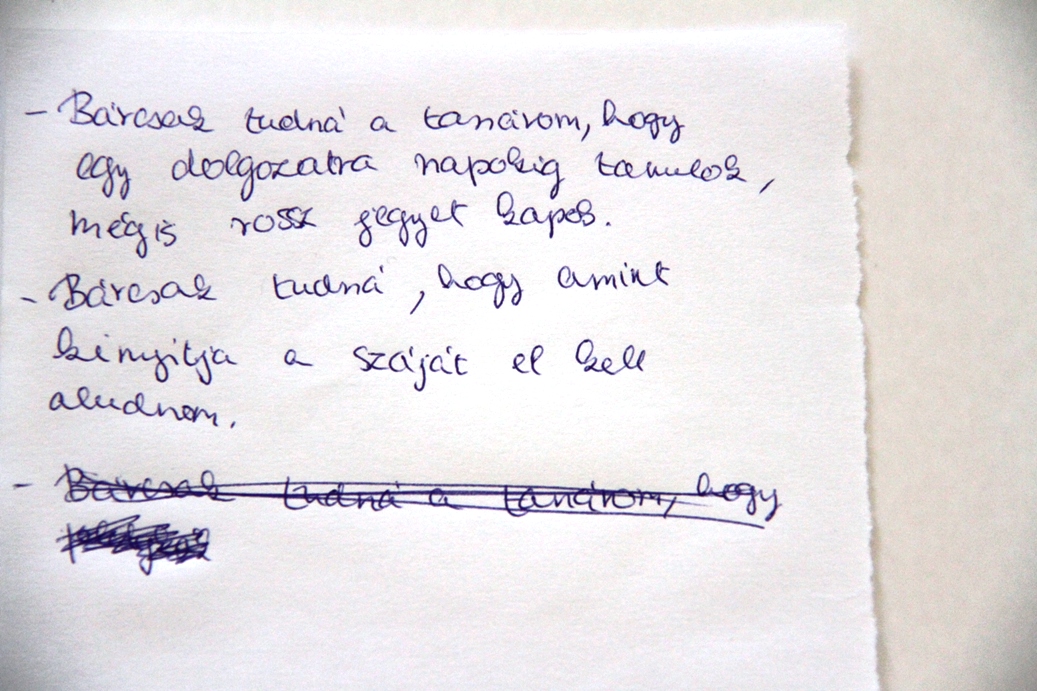 - Bárcsak tudná a tanárom, hogy
egy dolgozatra napokig tanulok,
mégis rossz jegyet kapok.
- Bárcsak tudná, hogy amint
kinyitja a száját el kell
aludnom.
- Bárcsak tudná a tanárom, hogy